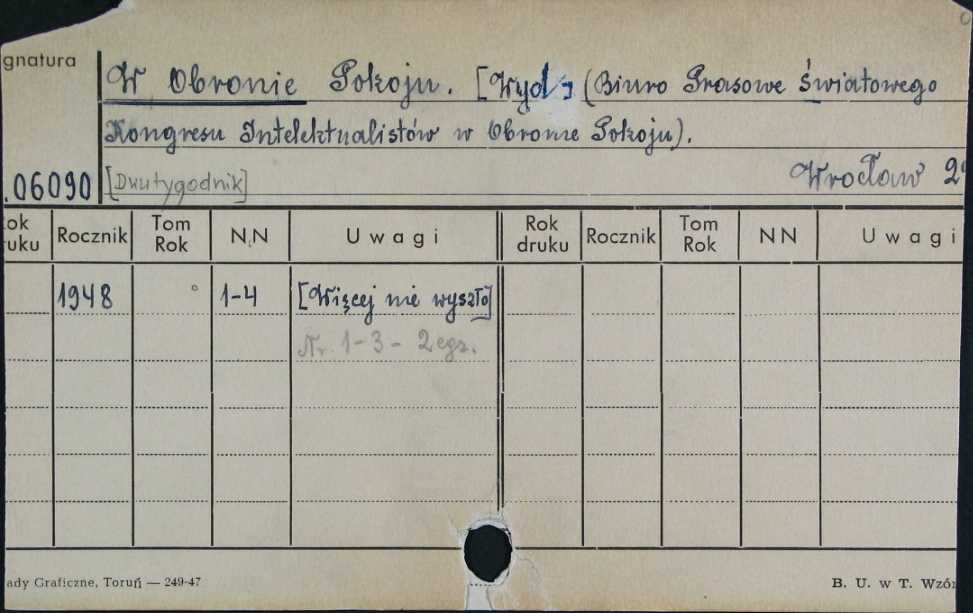 gnatura
W Obronie Pokoju. [Wyd.] (Biuro Prasowe Światowego
Kongresu Intelektualistów w Obronie Pokoju).
.06090 [Dwutygodnik] Wrocław 29
ok Rocznik Tom NN Uwagi Rok Rocznik Tom NN Uwagi
ruku Rok druku Rok
1948 1-4 [Więcej nie wyszło]
Nr. 1-3 - 2 egz.
ady Graficzne, Toruń — 249-47 B. U. w T. Wzór